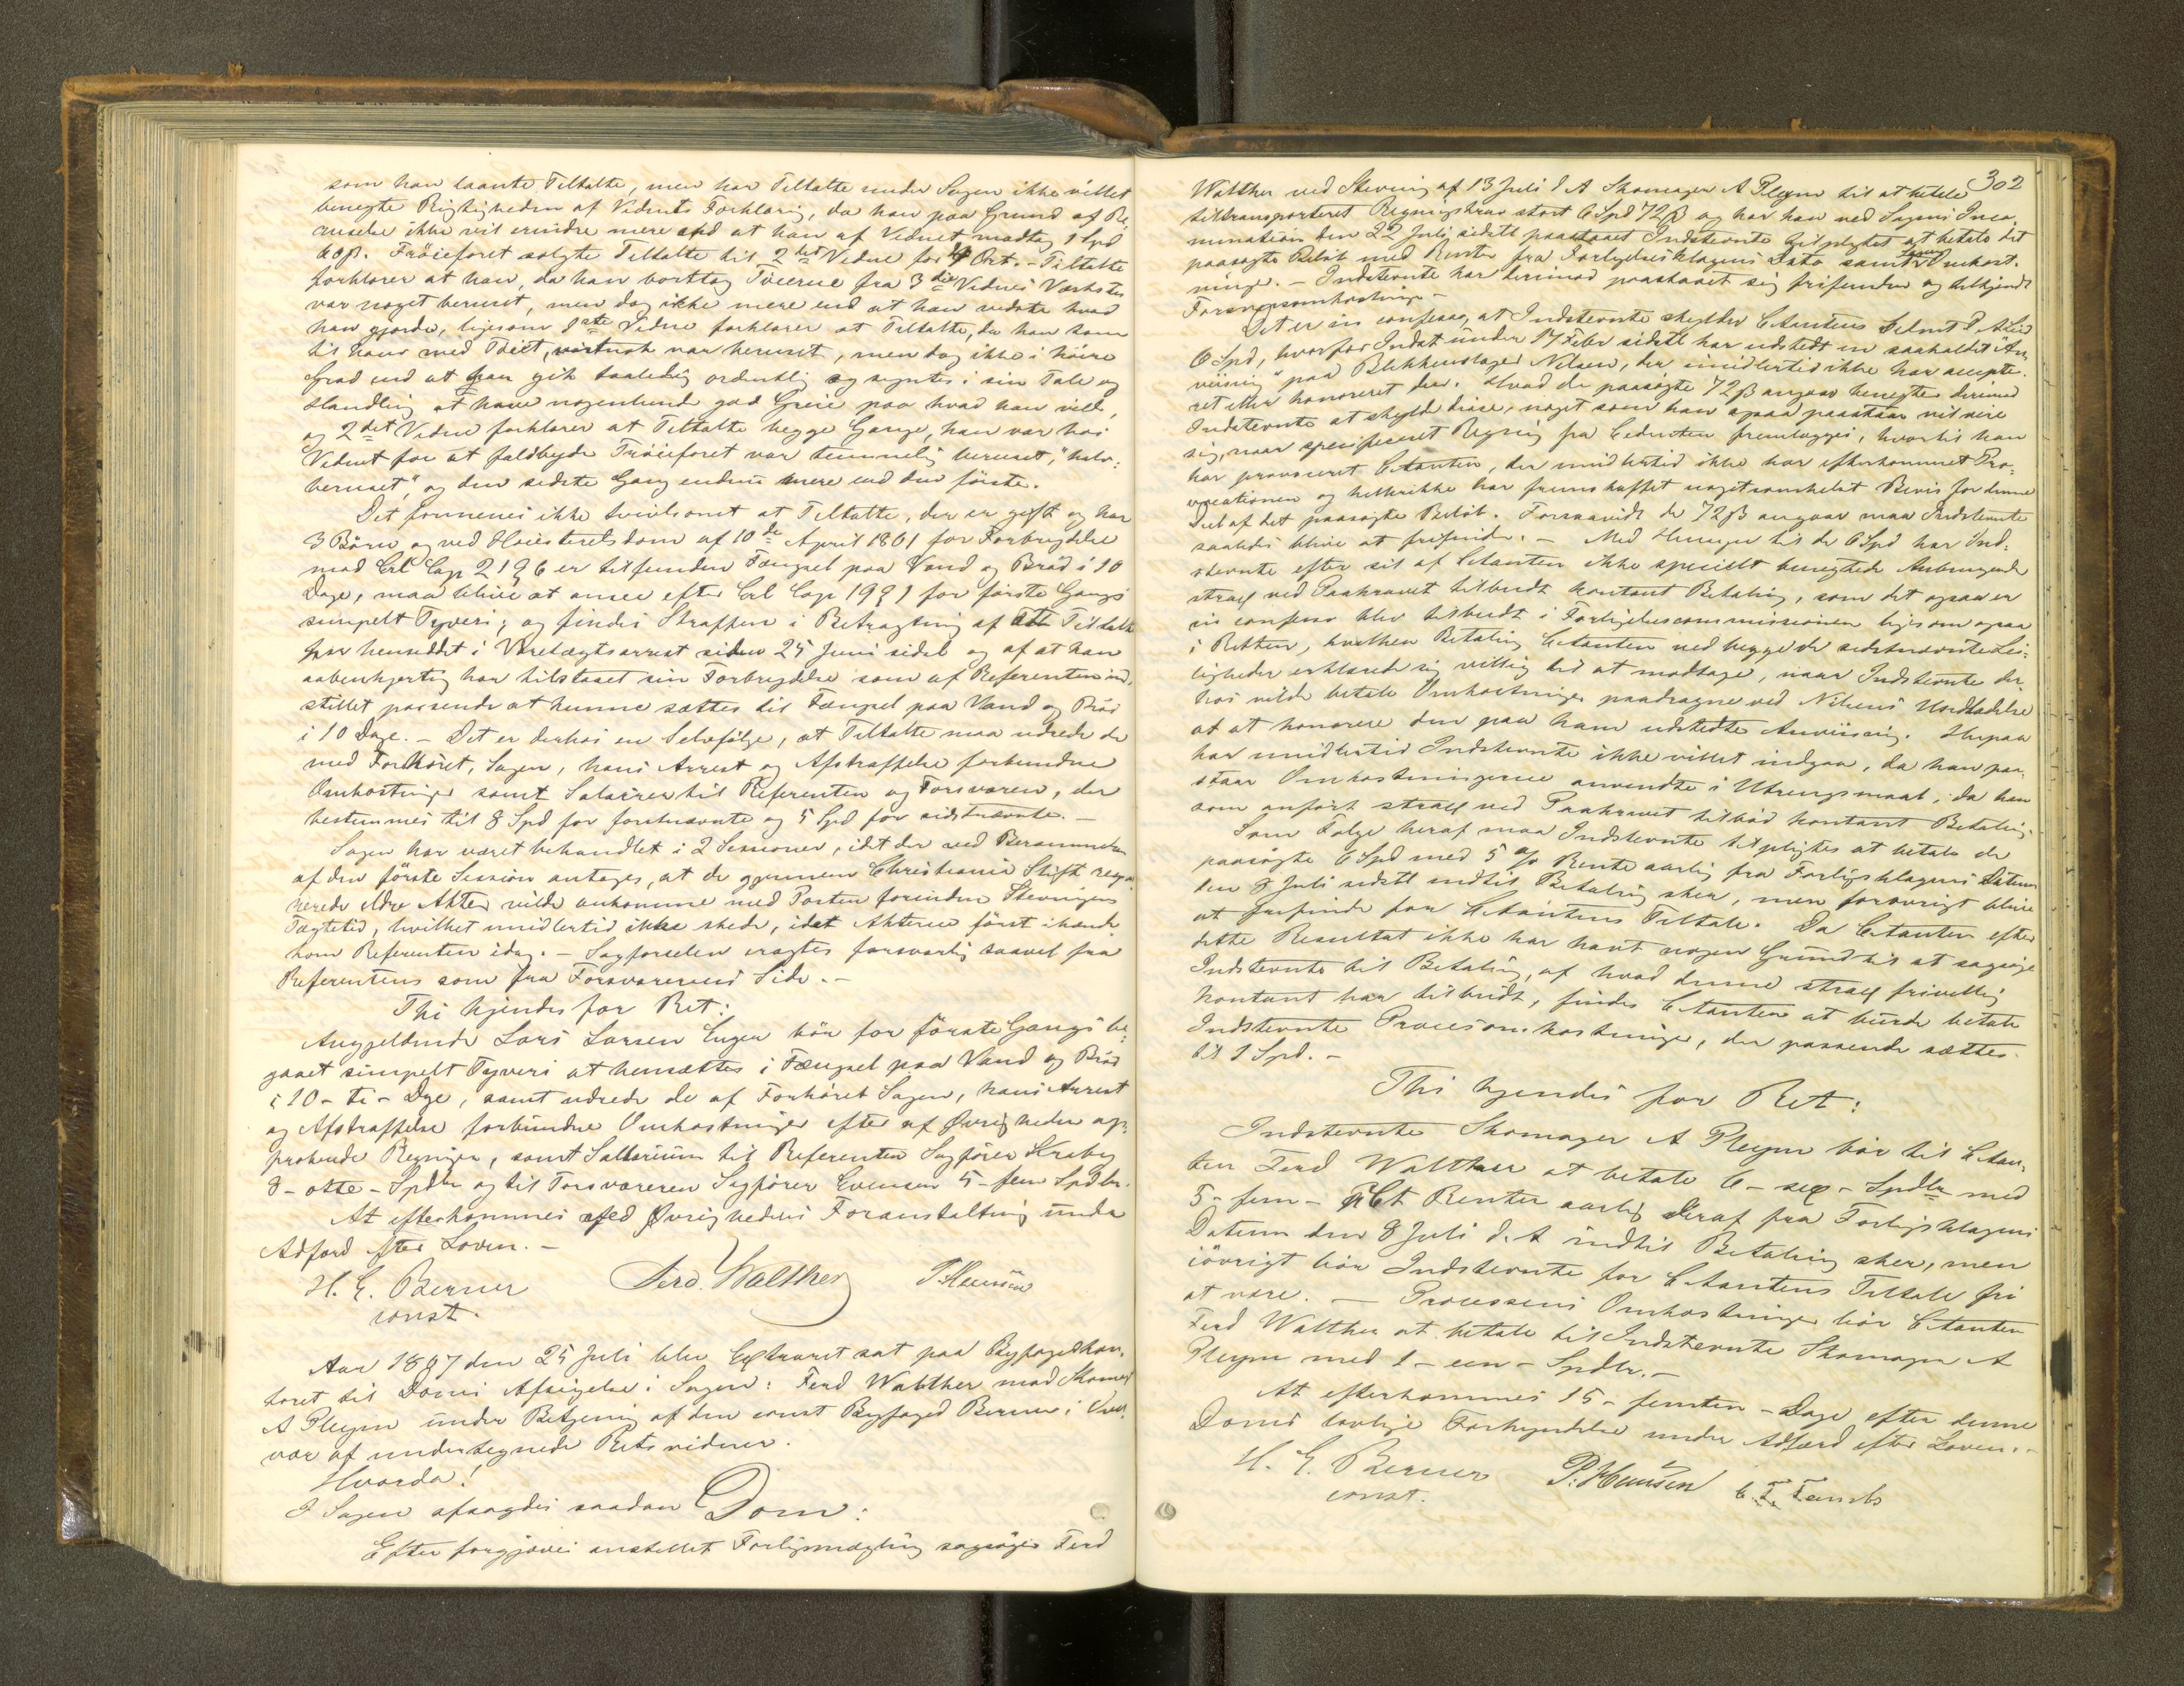 som han laante Tiltalte, men har Tiltalte under Sagen ikke villet
benegte Rigtigheden af Vidnets Forklaring, da han paa Grund af Be-
ruselse ikke vil erindre mere end at han af Vidnet modtog 1 Spd
60 β. Trøieforet solgte Tiltalte til 2det Vidne for Ort. - Tiltalte
forklarer at han, da han borttog Tøierne fra 3die Vidnes Værksted
var noget beruset, men dog ikke mere end at han vidste hvad
han gjorde, ligesom 1ste Vidne forklarer at Tiltalte, da han kom
til ham med Tøiet, vistnok var beruset, men dog ikke i høiere
Grad end at han gik taalelig ordentlig og syntes i sin Tale og
Handling at have nogenlunde god Greie paa hvad han vilde,
og 2det Vidne forklarer at Tiltalte begge Gange, han var hos
Vidnet for at falbyde Trøieforet var temmelig beruset, "halv-
beruset", og den sidste Gang endnu mere end den første.
Det formenes ikke tvivlsomt at Tiltalte, der er gift og har
3 Børn og ved Høiesteretsdom af 10de April 1861 for Forbrydelse
mod Crl Cap 21 § 6 er tilfunden Fængsel paa Vand og Brød i 10
Dage, maa blive at ansee efter Crl Cap 19 § 1 for første Gangs
simpelt Tyveri, og findes Straffen i Betragtning af at Tiltalte
har hensiddet i Varetægtsarrest siden 25 Juni sidstl og af at han
aabenhjertig har tilstaaet sin Forbrydelse som af Referenten ind-
stillet passende at kunne sættes til Fængsel paa Vand og Brød
i 10 Dage. - Det er derhos en Selvfølge, at Tiltalte maa udrede de
med Forhøret, Sagen, hans Arrest og Afstraffelse forbundne
Omkostninger samt Salairer til Referenten og Forsvareren, der
bestemmes til 8 Spd for førstnævnte og 5 Spd for sidstnævnte. -
Sagen har været behandlet i 2 Sessioner, idet der ved Berammelsen
af den første Session antages, at de gjennem Christiania Stift
ældre Akter vilde ankomme med Posten forinden Stevningens
Tægtetid, hvilket imidlertid ikke skede, idet Akterne først ihænde-
kom Referenten idag. - Sagførselen eragtes forsvarlig saavel fra
Referentens som fra Forsvarerens Side. -
Thi kjendes for Ret:
Angjeldende Lars Larsen Engen bør for første Gangs be-
gaaet simpelt Tyveri at hensættes i Fængsel paa Vand og Brød
i 10 - ti - Dage, samt udrede de af Forhøret Sagen, hans Arrest
og Afstraffelse forbundne Omkostninger efter af Øvrigheden ap-
proberede Regninger, samt Sallarium til Referenten Sagfører Kraby
8 - otte - Spdlr og til Forsvareren Sagfører Evensen 5 - fem Spdlr.
At efterkommes ved Øvrighedens Foranstaltning under
Adfærd efter Loven. -
H. E. Berner Ferd. Walther P. Hansen
const.
Aar 1867 den 25 Juli blev Extraret sat paa Byfogedkon-
toret til Doms Afsigelse i Sagen: Ferd Walther mod Skomager
A Pleym under Betjening af den const Byfoged Berner i Over-
vær af undertegnede Retsvidner.
Hvorda!
I Sagen afsagdes saadan Dom:
Efter forgjæves anstillet Forligsmægling sagsøger Ferd
302
Walther ved Stevning af 13 Juli d A Skomager A Pleym til at betale
tiltransporteret Regningskrav stort 6 Spd 72 β og har han ved Sagens Inca-
mination den 22 Juli sidstl paastaaet Indstevnte tilpligtet at betale det
paasøgte Beløb med Renter fra Forligelsesklagens Dato samt Omkost-
ninger. - Indstevnte har derimod paastaaet sig frifunden og tilkjendt
Forsvarsomkostninger -
Det er in confesso, at Indstevnte skylder Citantens Cedent
6 Spd, hvorfor Indst under 17 Febr sidstl har udstedt en saakaldet "An-
viisning" paa Blikkenslager Nilsen, der imidlertid ikke har accepte-
ret eller honoreret den. Hvad de paasøgte 72 β angaar benegter derimod
Indstevnte at skylde disse, noget som han ogsaa paastaar vil vise
sig, naar specificeret Regning fra Cedenten fremlægges, hvortil han
har provoceret Citanten, der imidlertid ikke har efterkommet Pro-
vocationen og hellerikke har fremskaffet nogetsomhelst Bevis for denne
Deel af det paasøgte Beløb. Forsaavidt de 72 β angaar maa Indstevnte
saaledes blive at frifinde. - Med Hensyn til de 6 Spd har Ind-
stevnte efter sit af Citanten ikke specielt benegtede Anbringende
strax ved Paakravet tilbudt kontant Betaling, som det ogsaa er
in confesso blev tilbudt i Forligelsescommissionen ligesom ogsaa
i Retten, hvilken Betaling Citanten ved begge de sidstnævnte Lei-
ligheder erklærede sig villig til at modtage, naar Indstevnte der-
hos vilde betale Omkostninger paadragne ved Nilsens Undladelse
af at honorere den paa ham udstedte Anviisning. Herpaa
har imidlertid Indstevnte ikke villet indgaa, da han paa-
staar Omkostningerne anvendte i Utrengsmaal, da han
som anført strax ved Paakravet tilbød kontant Betaling.
Som Følge heraf maa Indstevnte tilpligtes at betale de
paasøgte 6 Spd med 5 % Rente aarlig fra Forligsklagens Datum
den 8 Juli sidstl indtil Betaling sker, men forøvrigt blive
at frifinde for Citantens Tiltale. Da Citanten efter
dette Resultat ikke har havt nogen Grund til at sagsøge
Indstevnte til Betaling, af hvad denne strax frivillig
kontant har tilbudt, findes Citanten at burde betale
Indstevnte Procesomkostninger, der passende sættes
til 1 Spd. -
Thi kjendes for Ret:
Indstevnte Skomager A Pleym bør til Citan-
ten Ferd Walther at betale 6 - sex - Spdlr med
5 - fem - pCt Renter aarlig deraf fra Forligsklagens
Datum den 8 Juli d. A indtil Betaling sker, men
iøvrigt bør Indstevnte for Citantens Tiltale fri
at være. - Processens Omkostninger bør Citanten
Ferd Walther at betale til Indstevnte Skomager A
Pleym med 1 - een - Spdlr. -
At efterkommes 15 - femten - Dage efter denne
Doms lovlige Forkyndelse under Adfærd efter Loven. -
H. E. Berner P. Hansen
const.